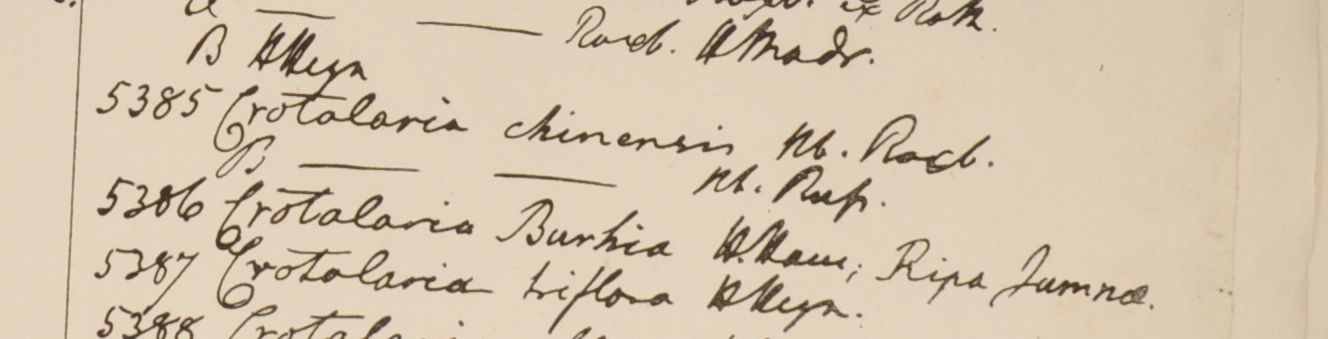 Roxb. H Madr.
B H Heyn
5385 Crotalaria chinensis Hb. Roxb.
B — — Hb. Rup.
5386 Crotalaria Burhia H. Ham; Ripa Jumnae.
5387 Crotalaria triflora H Heyn.
5388 Crotalaria